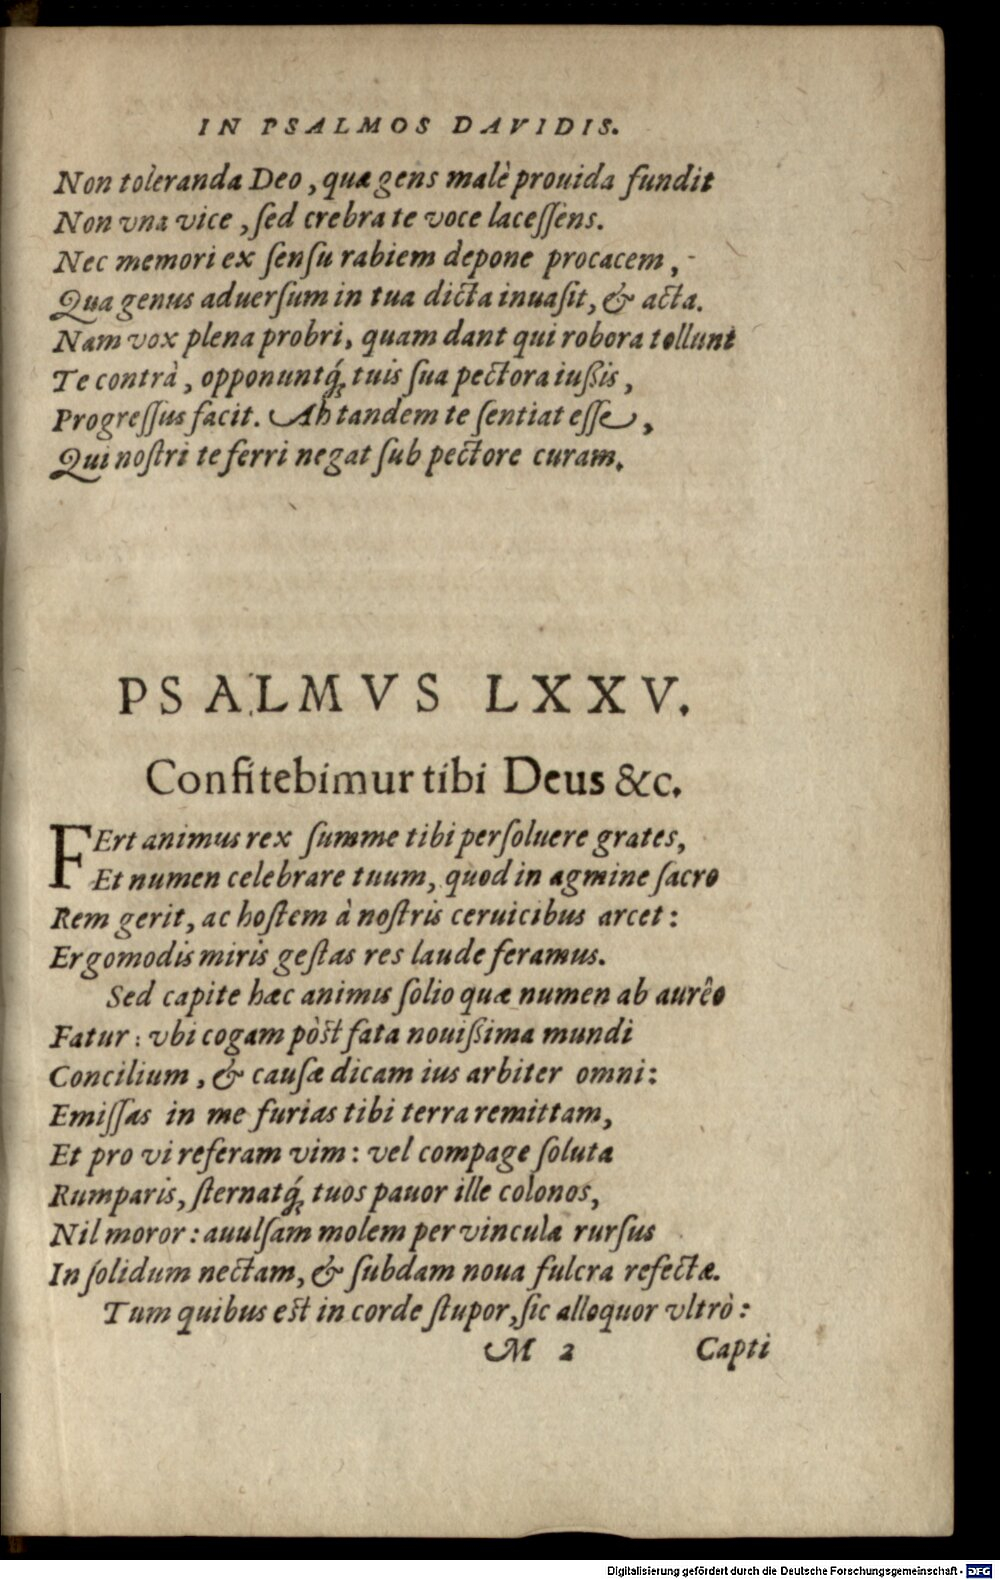 IN PSALMOS DAVIDIS.
Non toleranda Deo, quæ gens malè prouida fundit
Non vna vice, ſed crebra te voce laceſſens.
Nec memori ex ſenſu rabiem depone procacem,
Qua genus aduerſum in tua dicta inuaſit, & acta.
Nam vox plena probri, quam dant qui robora tollunt
Te contrà, opponuntq́; tuis ſua pectora iußis,
Progreſſus facit. Ah tandem te ſentiat eſſe,
Qui noſtri te ferri negat ſub pectore curam.
PSALMVS LXXV.
Confitebimur tibi Deus &c.
FErt animus rex ſumme tibi perſoluere grates,
Et numen celebrare tuum, quod in agmine ſacro
Rem gerit, ac hoſtem à noſtris ceruicibus arcet:
Ergo modis miris geſtas res laude feramus.
Sed capite hæc animis ſolio quæ numen ab aurêo
Fatur: vbi cogam pòſt fata nouißima mundi
Concilium, & cauſæ dicam ius arbiter omni:
Emiſſas in me furias tibi terra remittam,
Et pro vi referam vim: vel compage ſoluta
Rumparis, ſternatq́; tuos pauor ille colonos,
Nil moror: auulſam molem per vincula rurſus
In ſolidum nectam, & ſubdam noua fulcra refectæ.
Tum quibus eſt in corde ſtupor, ſic alloquor vltrò:
M 2 Capti
Digitalisierung gefördert durch die Deutsche Forschungsgemeinschaft - DFG